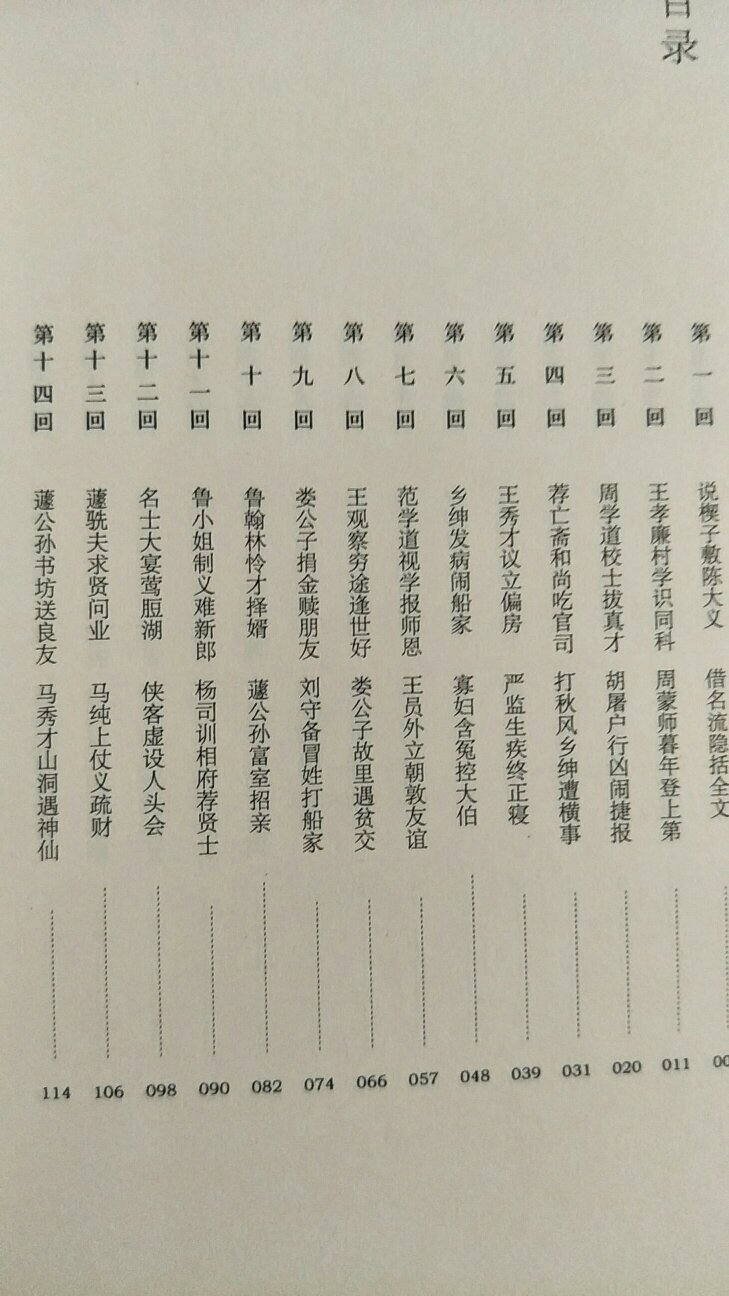 目录
第一回 说楔子敷陈大义 借名流隐括全文 00
第二回 王孝廉村学识同科 周蒙师暮年登上第 011
第三回 周学道校士拔真才 胡屠户行凶闹捷报 020
第四回 荐亡斋和尚吃官司 打秋风乡绅遭横事 031
第五回 王秀才议立偏房 严监生疾终正寝 039
第六回 乡绅发病闹船家 寡妇含冤控大伯 048
第七回 范学道视学报师恩 王员外立朝敦友谊 057
第八回 王观察穷途逢世好 娄公子故里遇贫交 066
第九回 娄公子捐金赎朋友 刘守备冒姓打船家 074
第十回 鲁翰林怜才择婿 蘧公孙富室招亲 082
第十一回 鲁小姐制义难新郎 杨司训相府荐贤士 090
第十二回 名士大宴莺脰湖 侠客虚设人头会 098
第十三回 蘧駪夫求贤问业 马纯上仗义疏财 106
第十四回 蘧公孙书坊送良友 马秀才山洞遇神仙 114